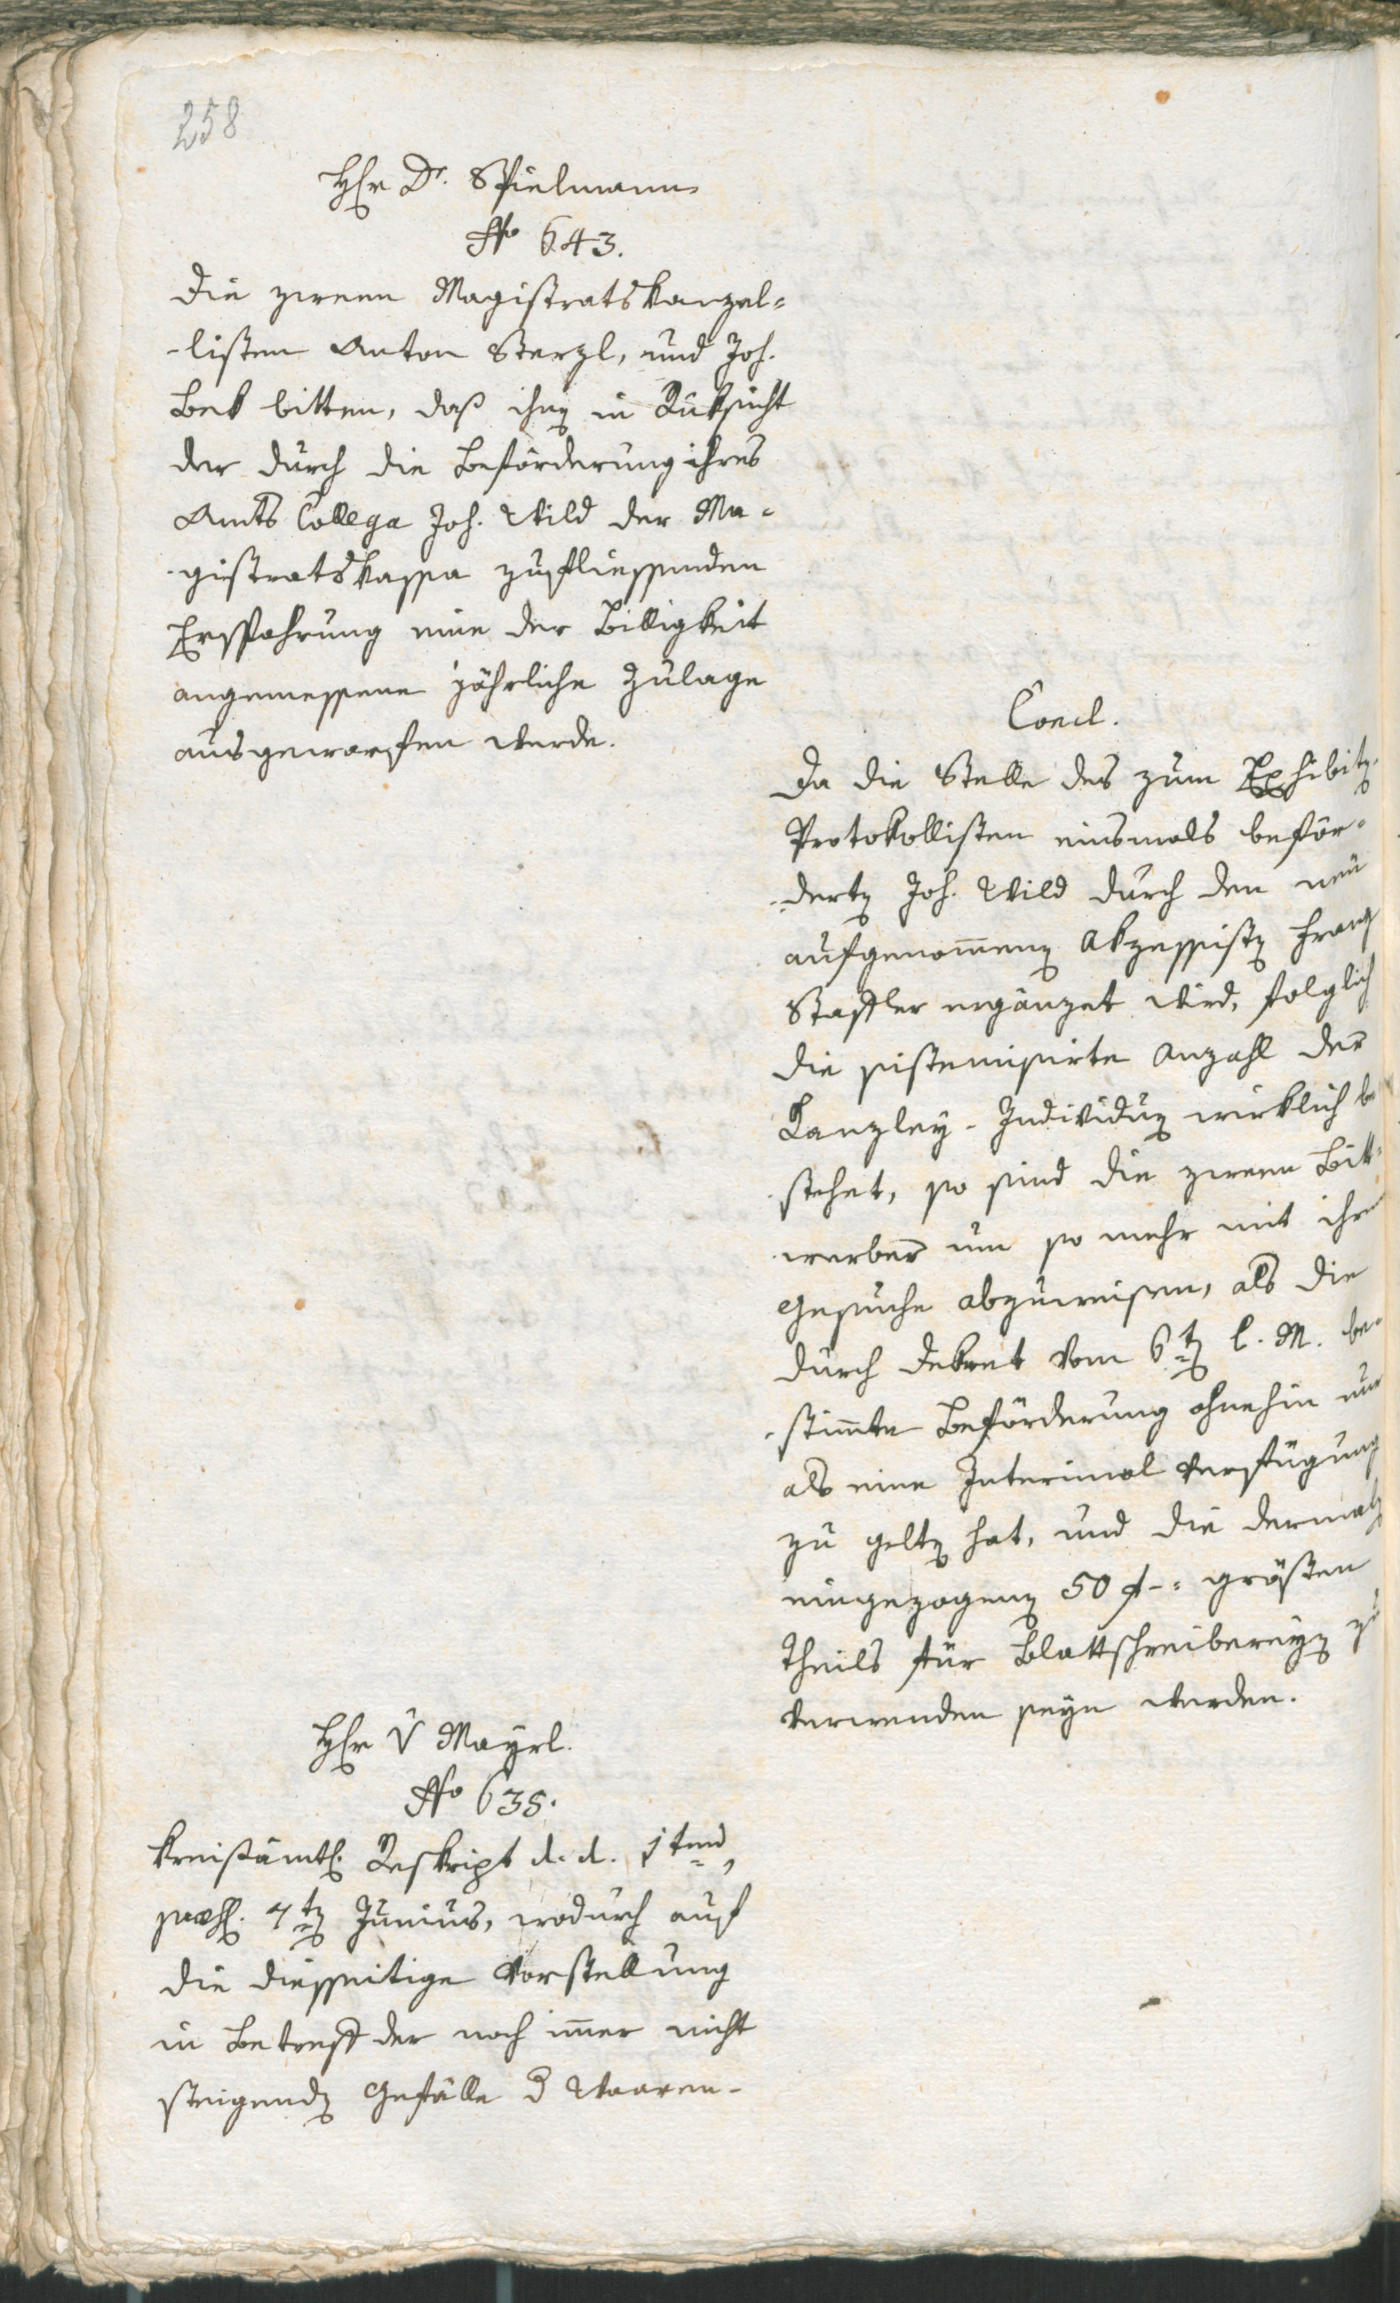 258
Hr Dr. Spielmann
No 643.
Die zween Magistratskanzel-
-listen Anton Sterzl, und Joh.
Bek bitten, daß ihnen in Rüksicht
der durch die Beförderung ihres
Amts Collega Joh. Wild der Ma-
-gistratskassa zufliessenden
Ersparung eine der Billigkeit
angemessene jährliche Zulage
ausgeworfen werde.
Concl.
Da die Stelle des zum Exhibiten
Protokollisten einsmals beför-
-derten Joh. Wild durch den neu
aufgenommenen Akzessisten Franz
Staffler ergänzet wird, folglich
die sistemisirte Anzahl der
Kanzley-Individuen wirklich be
-stehet, so sind die zween Bitt-
-werber um so mehr mit ihrem
Gesuche abzuweisen, als die
durch Dekret vom 6ten l. M. be-
-stimmte Beförderung ohnehin nur
als eine Interimal Verfügung
zu gelten hat, und die dermalen
eingezogenen 50 f-: größten
Theils für Blattschreibereyen zu
verwenden seyn werden.
Hr v Mayrl.
No 635.
Kreisämtl. Reskript d. d. 1ten,
praes. 4ten Junius, wodurch auf
die diesseitige Vorstellung
in Betreff der noch immer nicht
steigenden Gefälle d Waaren-